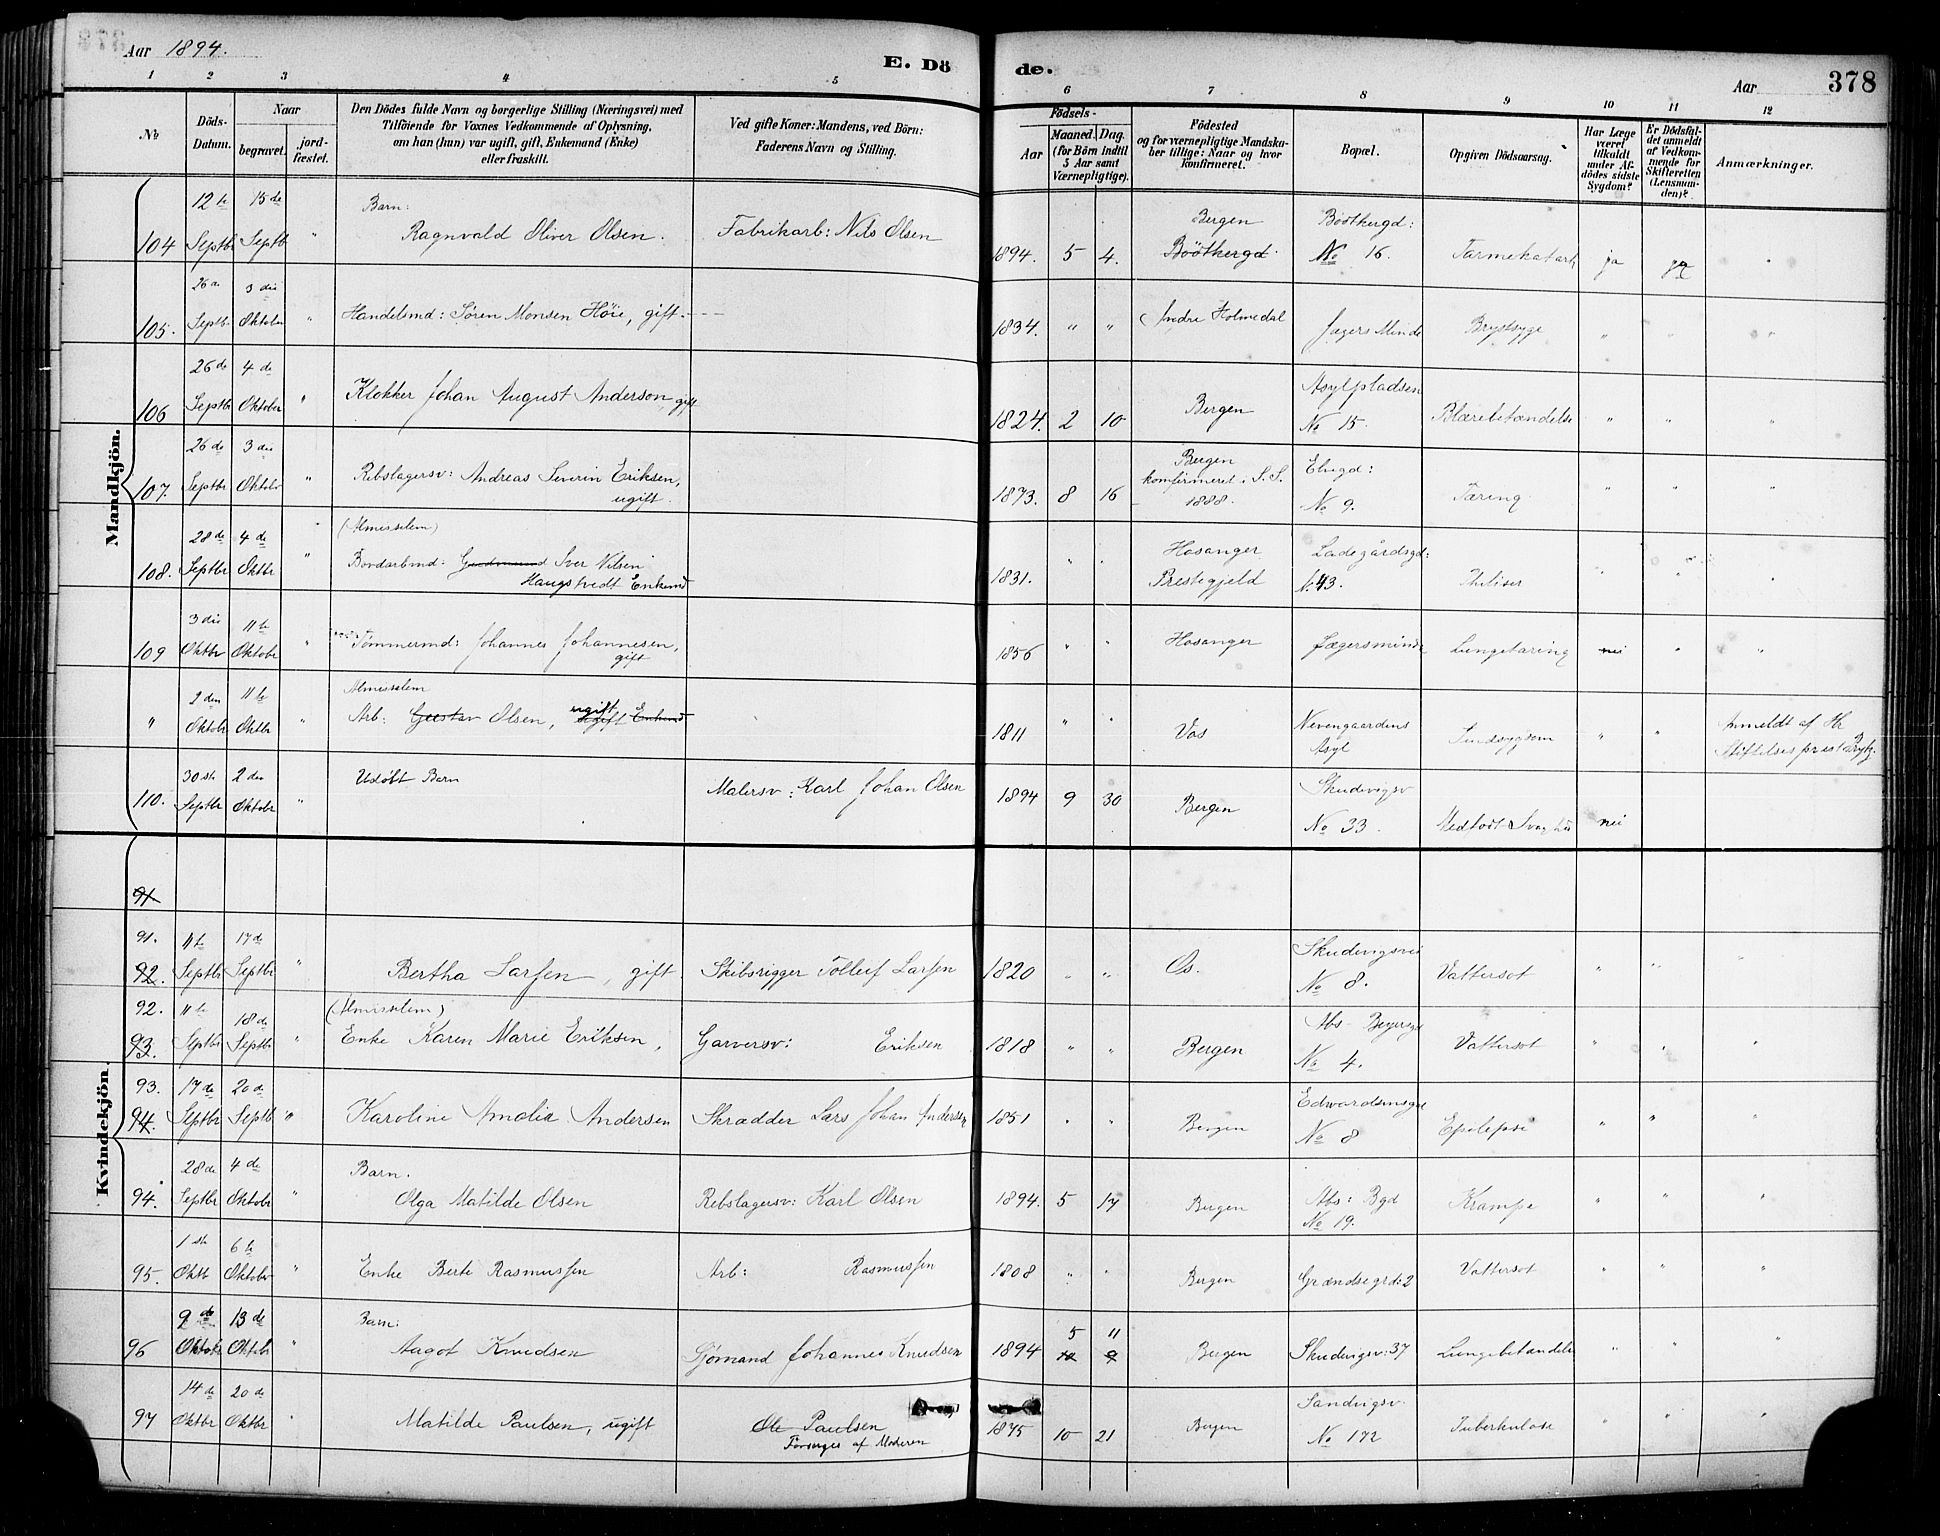 Aar 1894.
E. Dö
de.
Aar
378
1 2 3 4 5 6 7 8 9 10 11 12
№
Döds-Datum.
Naar
begravet.
jord-fæstet.
Den Dödes fulde Navn og borgerlige Stilling (Næringsvei) med
Tilföiende for Voxnes Vedkommende af Oplysning,
om han (hun) var ugift, gift, Enkemand (Enke)
eller fraskilt.
Ved gifte Koner: Mandens, ved Börn:
Faderens Navn og Stilling.
Födsels-
Aar
Maaned. Dag.
(for Börn indtil
5 Aar samt
Værnepligtige).
Födested
og for værnepligtige Mandska-
ber tillige: Naar og hvor
konfirmeret.
Bopæl.
Opgiven Dödsaarsag.
Har Læge
været
tilkaldt
under Af-
dödes sidste
Sygdom?
Er Dödsfal-
det anmeldt
af Vedkom-
mende for
Skifteretten
(Lensman-
den)?
Anmærkninger.
Mandkjön.
12te 15de Barn: Bergen Böötkergd:
104 Septbr Septb " Ragnvald Oliver Olsen. Fabrikarb: Nils Olsen 1894. 5 4. Böötkergd. No 16. Tarmekatarh ja ja "
26de 3die
105. Septbr Oktober " Handelsmd: Søren Monsen Höie, gift. 1834. " " Indre Holmedal Jægers Minde Brystsyge " " "
26de 4de Asylpladsen
106 Septbr Oktober " Klokker Johan August Anderson, gift 1824. 2 10 Bergen No 15. Blærebetændelse " " "
26de 3die Bergen Elvegd:
107. Septbr Oktobr " Rebslagersv: Andreas Severin Eriksen, ugift. 1873. 8 16 konfirmeret i S. S. 1888. No 9. Tæring " " "
28de 4de (Almisselem) Hosanger Ladegårdsgd:
108. Septbr Oktbr " Bordarbmd: Gudmund Iver Nilsen
Haugstvedt Enkemd 1831. " " Prestegjeld No 43. Thitiser " " "
3die 11te
109 Oktbr Oktobr " Tömmermd: Johannes Johannesen, gift 1856 " " Hosanger Jægersminde Lungetæring nei " "
2den 11te Almisselem
" Oktobr Oktbr " Arb: Gustav Olsen, ugift Enkemd 1811 " " Vos Nevengaardens Asyl Sindssygdom " " Anmeldt af Hr
Stiftelsesprest
30te 2den Udöbt Barn Skudevigsv
110. Septbr Oktober " Malersv: Karl Johan Olsen 1894 9 30 Bergen No 33. Medfødt Svaghed nei
Kvindekjön.
91
91. 11te 17de Skudevigsvei
92. Septbr Septbr " Bertha Larsen, gift Skibsrigger Tollef Larsen 1820 " " Os. No 8. Vattersot " " "
92. 11te 18de (Almisselem)
93. Septbr Septbr " Enke Karen Marie Eriksen, Garversv: Eriksen 1818 " " Bergen No 4. Vattersot " " "
93. 17de 20de Edwardsensgd
94. Septbr Septb " Karoline Amalia Andersen Skrædder Lars Johan Andersen 1851 " " Bergen No 8 Epelepsi " "
28de 4de Barn.
94. Septbr Oktobr " Olga Matilde Olsen Rebslagersv: Karl Olsen 1894. 5 17 Bergen No 19. Krampe " " "
1ste 6te
95. Oktb Oktober " Enke Berte Rasmussen Arb: Rasmussen 1808 " " Bergen Grændsegrd: 2 Vattersot " " "
9de 13de Barn: 5 11
96 Oktobr Oktobr " Aagot Knudsen Sjömand Johannes Knudsen 1894 10 9 Bergen Skudevigsv: 37 Lungebetændelse " " "
14de 20de Sandvigsv.
97 Oktbr Oktbr " Matilde Paulsen, ugift Ole Paulsen
Forsørges af Moderen 1875 10 21 Bergen No 172 Tuberkulose " " "